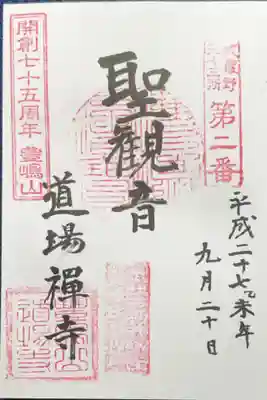 武蔵野
三十三所
第二番
平成二十七乙未年
九月二十日
聖観音
道場禅寺
開創七十五周年 豊嶋山